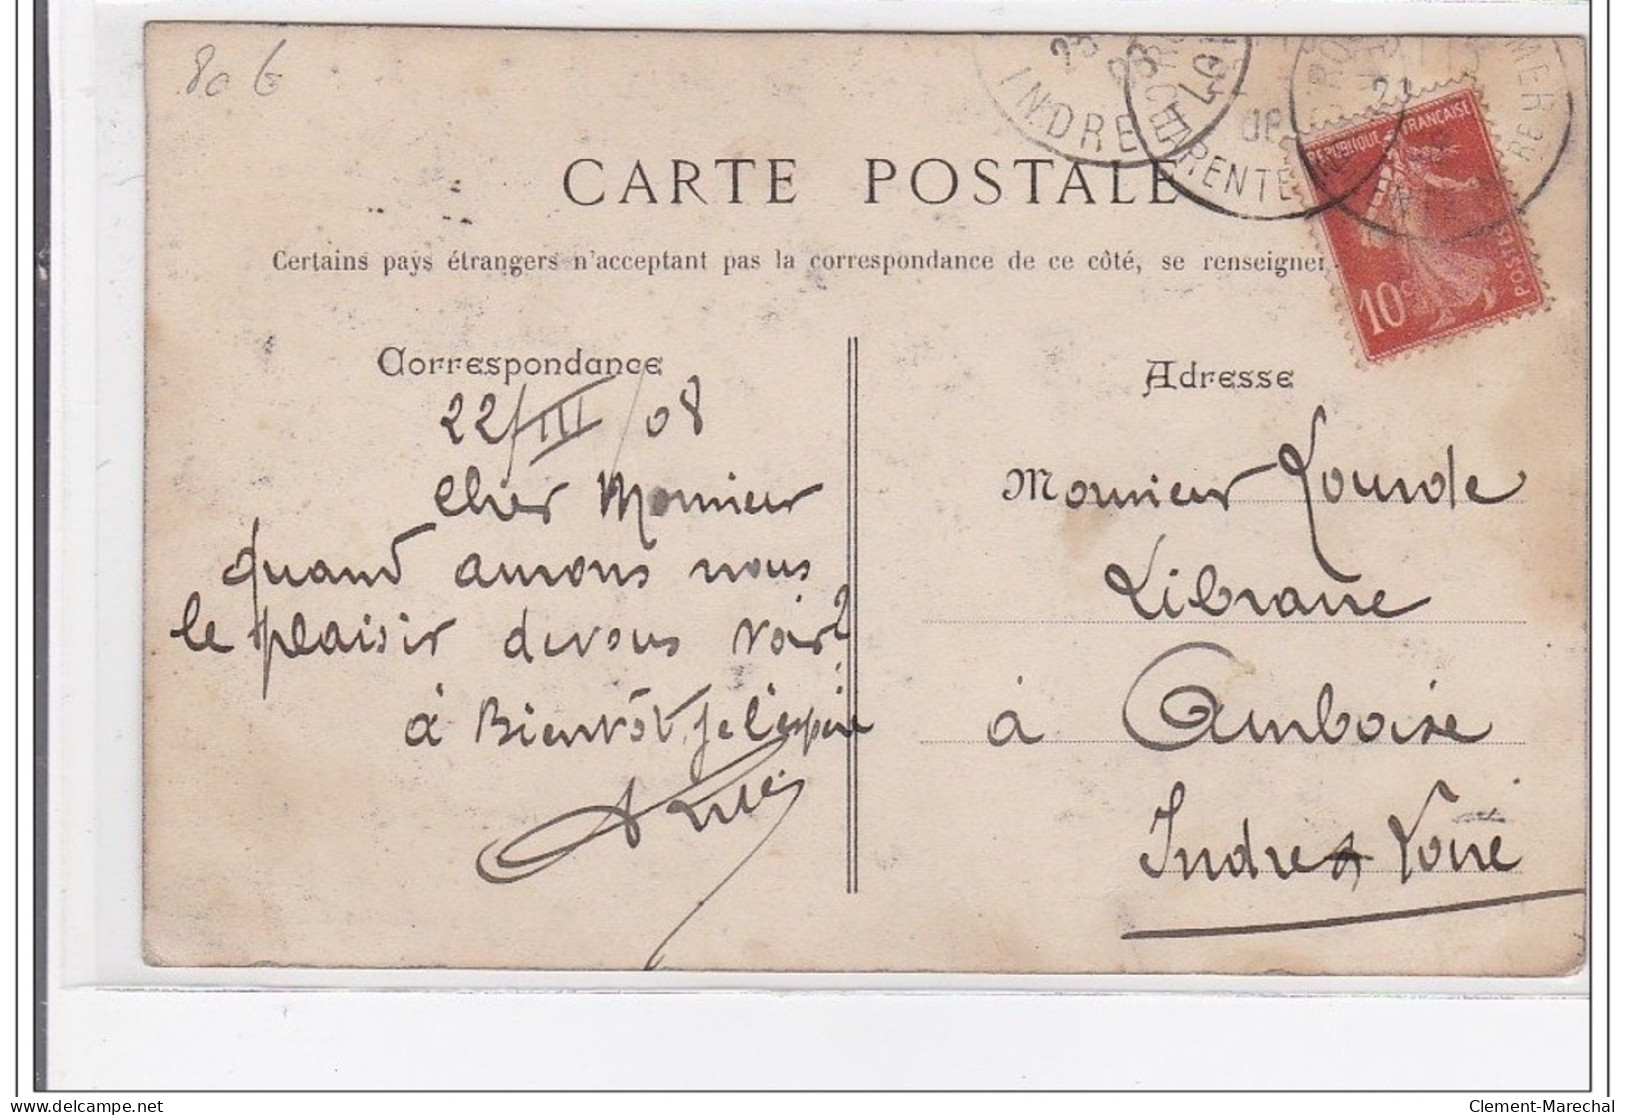 80 €
INDRE
23
RENTE
2
MER
CARTE POSTALE
RÉPUBLIQUE FRANÇAISE
POSTES
10
Certains pays étrangers n'acceptant pas la correspondance de ce côté, se renseigner
Correspondance
22/III/08
Cher Monsieur
quand aurons nous
le plaisir de vous voir?
à Bientôt je l'espère
Adresse
Monsieur Lourde
Libraire
à Amboise
Indre & Loire
Clement-Marechal